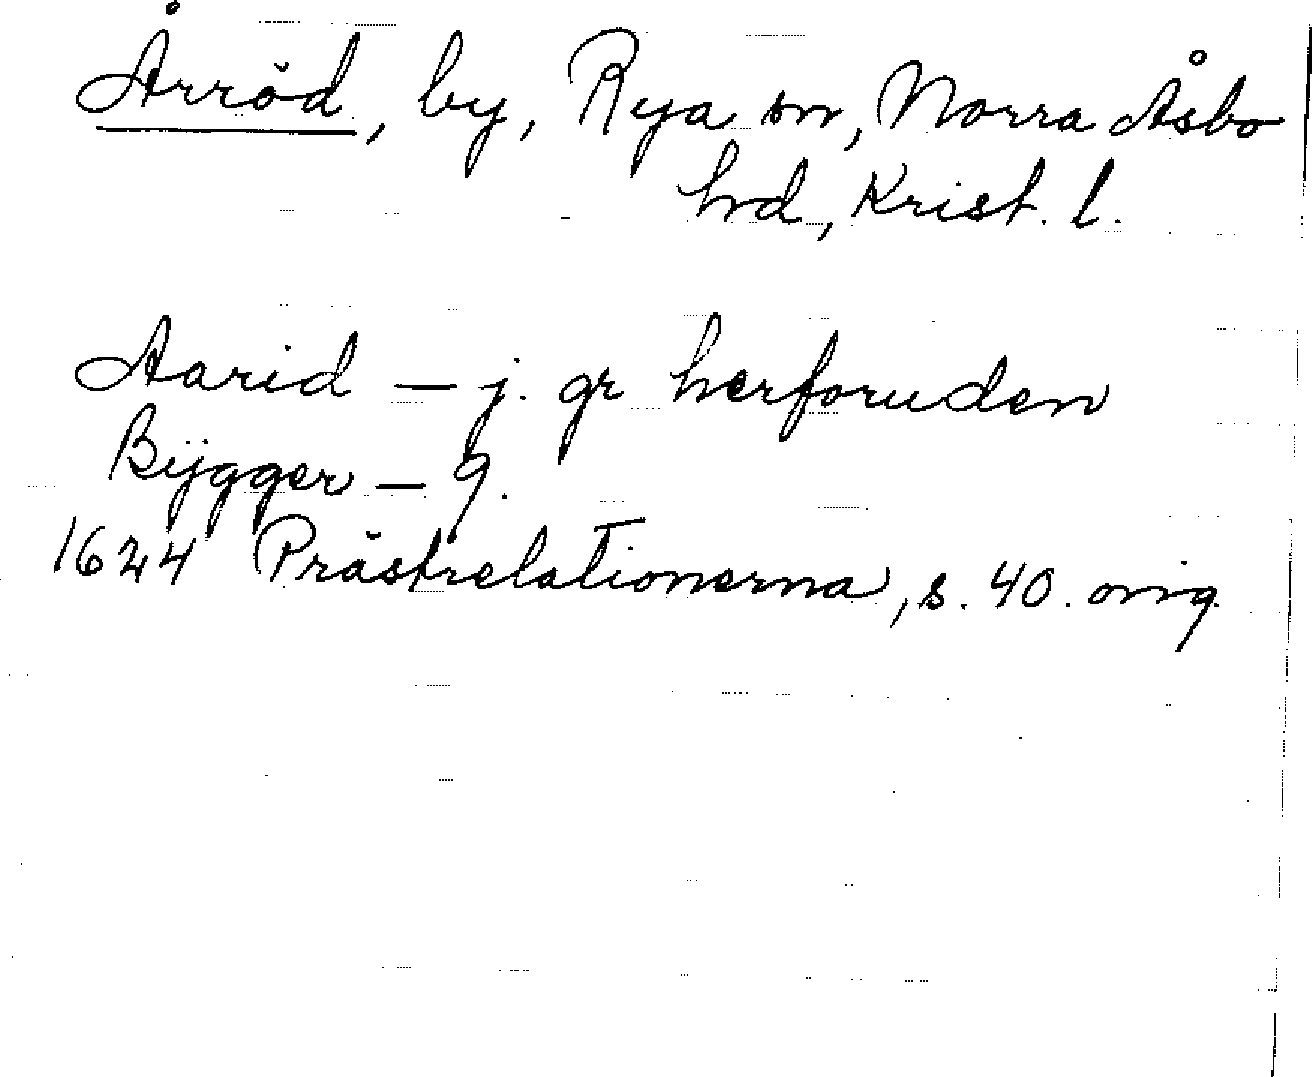 Årröd, by, Rya sn, Norra Åsbo
hrd, Krist. l.
Aarid — j. gr herforuden
Bÿgger — 9.
1624 Prästrelationerna, s. 40. orig.